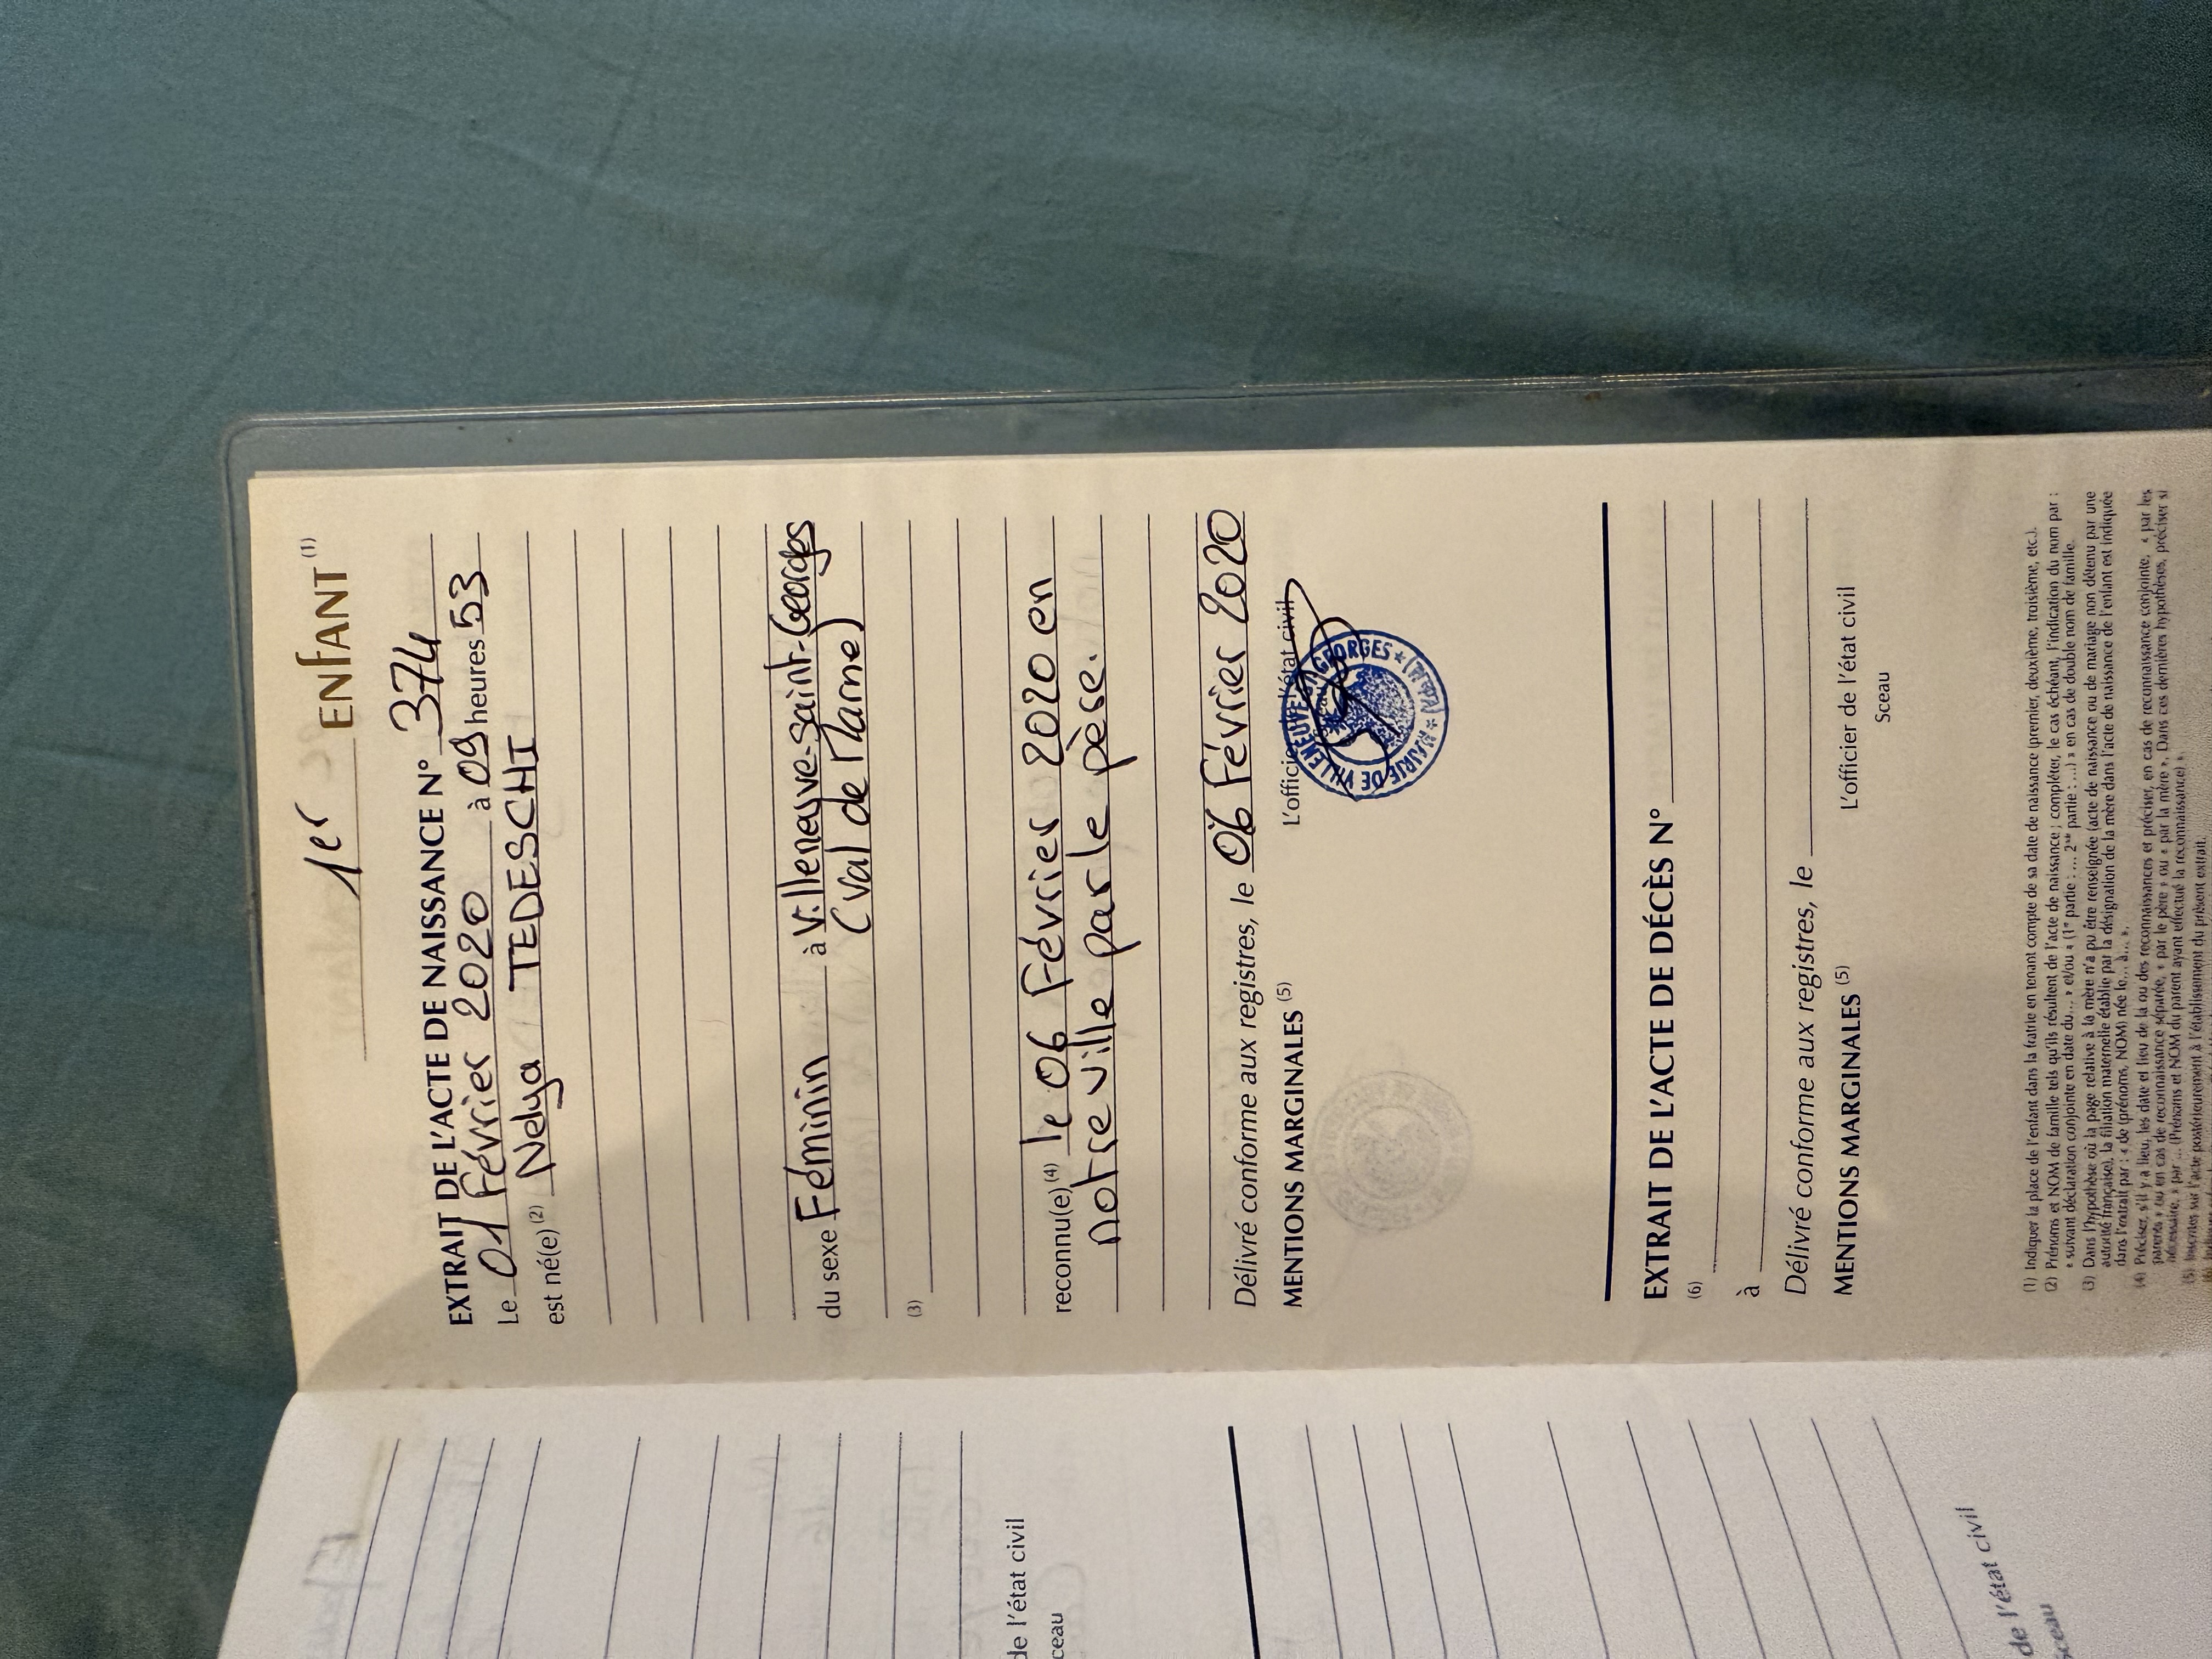 1er ENFANT (1)
EXTRAIT DE L'ACTE DE NAISSANCE N° 374
Le 01 Février 2020 à 09 heures 53
est né(e) (2) Nelya TEDESCHI
du sexe Féminin à Villeneuve-Saint-Georges
(Val de Marne)
(3)
reconnu(e) (4) le 06 Février 2020 en
notre ville par le père.
Délivré conforme aux registres, le 06 Février 2020
MENTIONS MARGINALES (5)
L'officier de l'état civil
Sceau
MAIRIE DE VILLENEUVE ST GEORGES
EXTRAIT DE L'ACTE DE DÉCÈS N°
(6)
à
Délivré conforme aux registres, le
MENTIONS MARGINALES (5)
L'officier de l'état civil
Sceau
(1) Indiquer la place de l'enfant dans la fratrie en tenant compte de sa date de naissance (premier, deuxième, troisième, etc.).
(2) Prénoms et NOM de famille tels qu'ils résultent de l'acte de naissance ; compléter, le cas échéant, l'indication du nom par :
« suivant déclaration conjointe en date du... » et/ou « (1re partie : ... 2nde partie : ...) » en cas de double nom de famille.
(3) Dans l'hypothèse où la page relative à la mère n'a pu être renseignée (acte de naissance ou de mariage non détenu par une
autorité française), la filiation maternelle établie par la désignation de la mère dans l'acte de naissance de l'enfant est indiquée
dans l'extrait par : « de (prénoms, NOM) née le... à... ».
(4) Préciser, s'il y a lieu, les date et lieu de la ou des reconnaissances et préciser, en cas de reconnaissance conjointe, « par les
parents » ou en cas de reconnaissance séparée, « par le père » ou « par la mère ». Dans ces dernières hypothèses, préciser si
nécessaire, « par ... (Prénoms et NOM du parent ayant effectué la reconnaissance) ».
(5) Inscrites sur l'acte postérieurement à l'établissement du présent extrait.
de l'état civil
sceau
de l'état civil
sceau